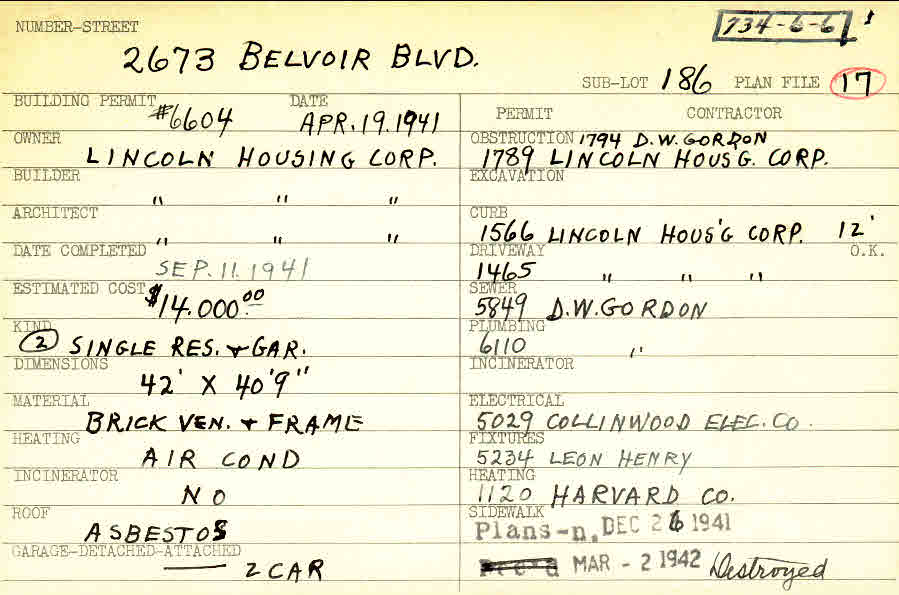 NUMBER-STREET
734-6-6
2673 BELVOIR BLVD.
SUB-LOT 186 PLAN FILE 17
BUILDING PERMIT #6604 DATE APR. 19. 1941
OWNER LINCOLN HOUSING CORP.
BUILDER " " "
ARCHITECT " " "
DATE COMPLETED SEP. 11. 1941
ESTIMATED COST $14.000.00
KIND (2) SINGLE RES. & GAR.
DIMENSIONS 42' X 40'9"
MATERIAL BRICK VEN. & FRAME
HEATING AIR COND
INCINERATOR NO
ROOF ASBESTOS
GARAGE-DETACHED-ATTACHED 2 CAR
PERMIT CONTRACTOR
OBSTRUCTION 1794 D.W. GORDON
1789 LINCOLN HOUSG. CORP.
EXCAVATION
CURB 1566 LINCOLN HOUS'G CORP. 12'
DRIVEWAY 1465 " " " O.K.
SEWER 5849 D.W. GORDON
PLUMBING 6110 "
INCINERATOR
ELECTRICAL 5029 COLLINWOOD ELEC. CO.
FIXTURES 5234 LEON HENRY
HEATING 1120 HARVARD CO.
SIDEWALK
Plans-n. DEC 26 1941
MAR - 2 1942 Destroyed